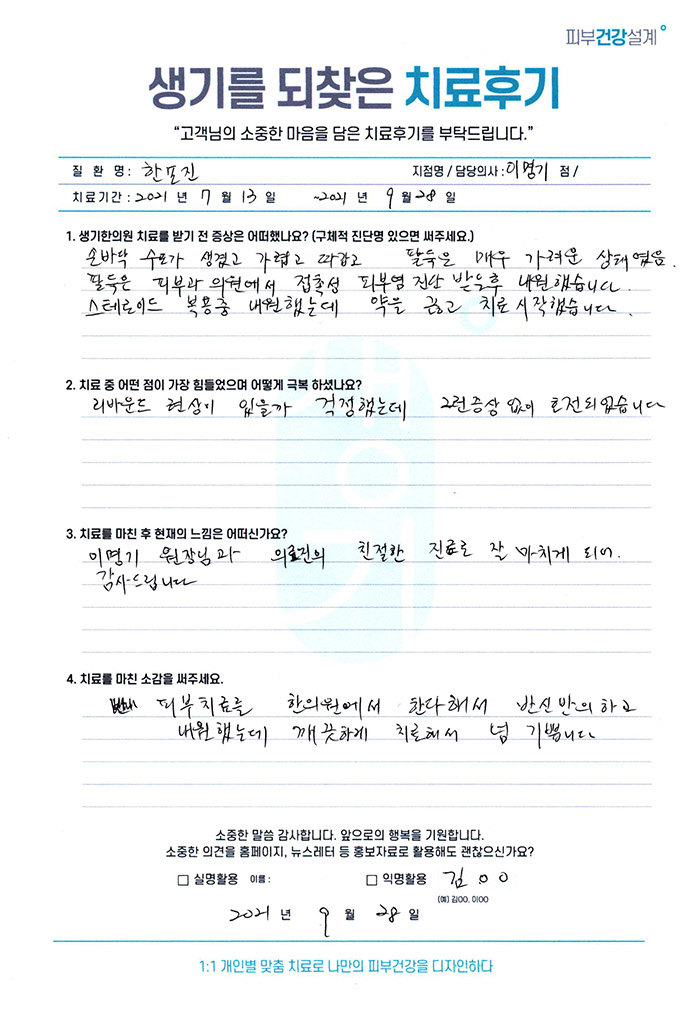 피부건강설계
생기를 되찾은 치료후기
“고객님의 소중한 마음을 담은 치료후기를 부탁드립니다.”
질 환 명 : 한포진 지점명 / 담당의사 : 이명기 점 /
치료기간 : 2021 년 7 월 13 일 ~2021 년 9 월 28 일
1. 생기한의원 치료를 받기 전 증상은 어떠했나요? (구체적 진단명 있으면 써주세요.)
손바닥 수포가 생겼고 가렵고 따갑고 팔뚝은 매우 가려운 상태였음.
팔뚝은 피부과 의원에서 접촉성 피부염 진단 받은후 내원했습니다.
스테로이드 복용중 내원했는데 약을 끊고 치료 시작했습니다.
2. 치료 중 어떤 점이 가장 힘들었으며 어떻게 극복 하셨나요?
리바운드 현상이 있을까 걱정했는데 그런증상 없이 호전되었습니다
3. 치료를 마친 후 현재의 느낌은 어떠신가요?
이명기 원장님과 의료진의 친절한 진료로 잘 마치게 되어.
감사드립니다
4. 치료를 마친 소감을 써주세요.
피부치료를 한의원에서 한다해서 반신반의 하고
내원했는데 깨끗하게 치료해서 넘 기쁩니다
소중한 말씀 감사합니다. 앞으로의 행복을 기원합니다.
소중한 의견을 홈페이지, 뉴스레터 등 홍보자료로 활용해도 괜찮으신가요?
□ 실명활용 이름 : □ 익명활용 김 ○ ○
(예) 김OO, 이OO
2021 년 9 월 28 일
1:1 개인별 맞춤 치료로 나만의 피부건강을 디자인하다
생기